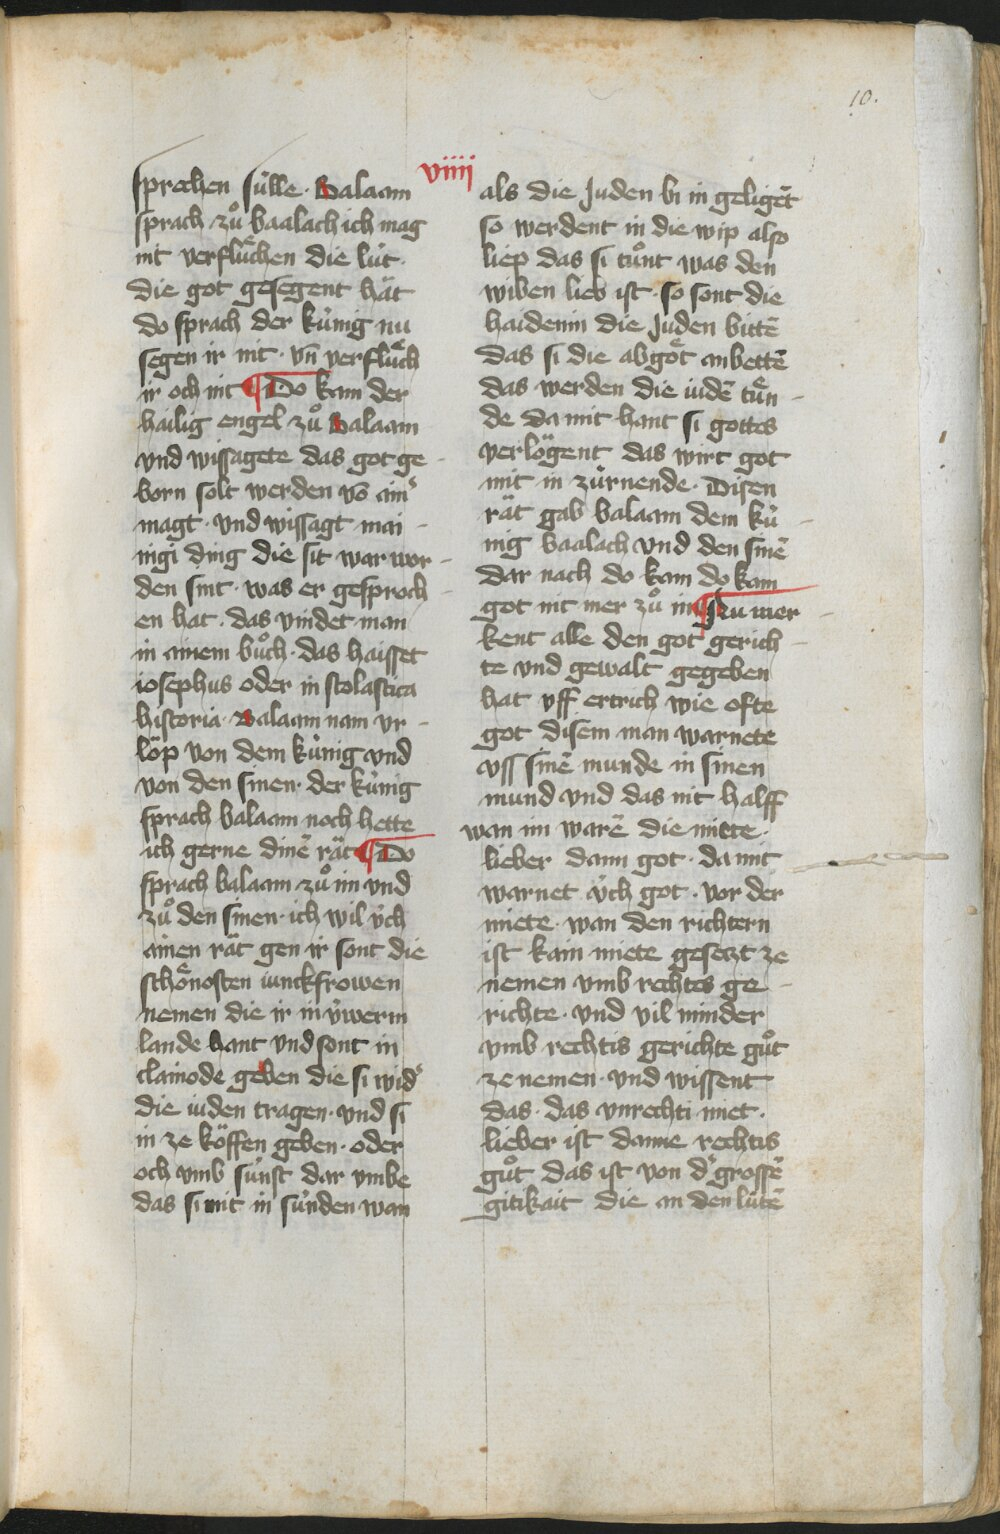 10.
viiij
sprechen sülle. Balaam
sprach zuͦ baalach ich mag
nit verfluͤchen die lüt.
die got gesegent hät
do sprach der künig nu
segen ir nit. vn̄ verfluͤch
ir och nit ¶ Do kam der
hailig engel zuͦ Balaam
vnd wissagete das got ge-
born solt werden vō ainˢ
magt. vnd wissagt mai-
nigi ding die sit war wor-
den sint. was er gesproch-
en hat. das vindet man
in ainem buͦch. das haisset
iosephus oder in scolastica
historia. Balaam nam vr-
löp von dem künig vnd
von den sinen. der künig
sprach balaam noch hette
ich gerne dinē rät ¶ Do
sprach balaam zuͦ im vnd
zuͦ den sinen. ich wil v̈ch
ainen rät gen ir sont die
schoͤnosten iunckfrowen
nemen die ir in v̈werm
lande hant vnd sont in
clainode geben die si widˢ
die iuden tragen. vnd si
in ze köffen geben. oder
och vmb sünst dar vmbe
das si mit in sünden wan
als die Juden bi in geligēt
so werdent in die wip also
liep das si tuͦnt was den
wiben lieb ist. so sont die
haidenin die Juden bittē
das si die abgoͤt anbettē
das werden die iudē tuͤn-
de da mit hant si gottes
verlögent das wirt got
mit in zürnende. Disen
rät gab balaam dem kü-
nig baalach vnd den sinē
dar nach do kam do kam
got nit mer zuͦ im ¶ Nu mer-
kent alle den got gerich-
te vnd gewalt gegeben
hat vff ertrich wie ofte
got disem man warnete
vss sinē munde in sinen
mund vnd das nit halff
wan im warē die miete.
lieber dann got. da mit
warnet v̈ch got. vor der
miete. wan den richtern
ist kain miete gesetzt ze
nemen vmb rechtes ge-
richte. vnd vil minder
vmb rechtis gerichte guͦt
ze nemen. vnd wissent
das. das vnrechti miet.
lieber ist danne rechtis
guͦt das ist von dˢ grossē
gitikait die an den lütē